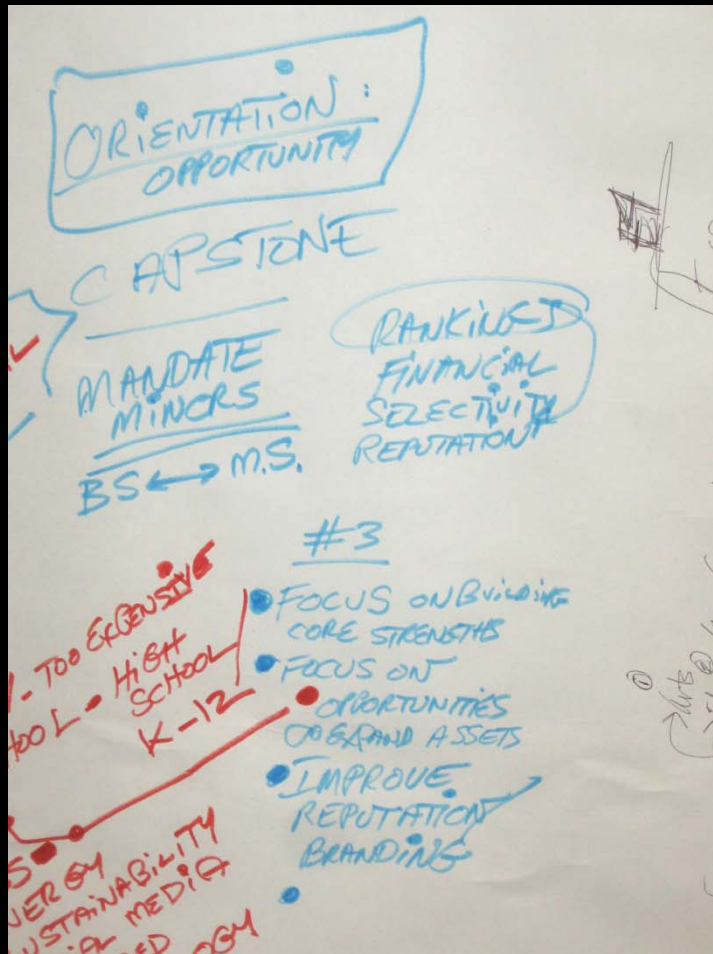 ORIENTATION:
OPPORTUNITY
CAPSTONE
MANDATE
MINORS
BS ↔ M.S.
RANKINGS
FINANCIAL
SELECTIVITY
REPUTATION
#3
• FOCUS ON BUILDING
CORE STRENGTHS
• FOCUS ON
OPPORTUNITIES
TO EXPAND ASSETS
• IMPROVE
REPUTATION
BRANDING
•
- TOO EXPENSIVE
• HIGH
SCHOOL
K-12
MEDIA
①
→ Arts
②